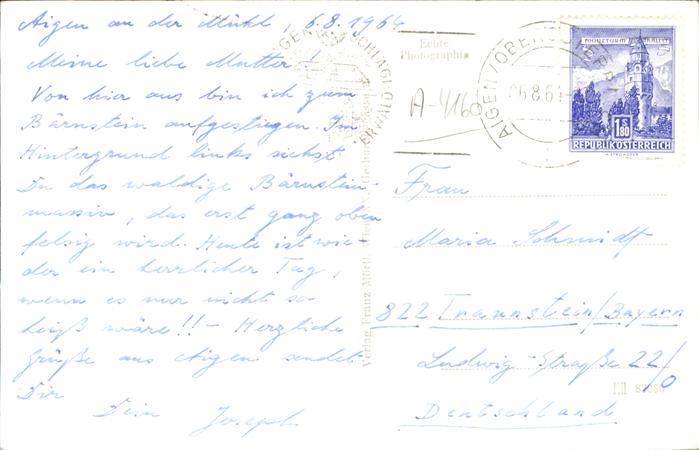 Aigen an der Mühl, 6.8.1964
Meine liebe Mutter!
Von hier aus bin ich zum
Bärnstein aufgestiegen. Im
Hintergrund links siehst
Du das waldige Bärnstein-
massiv, das erst ganz oben
felsig wird. Heute ist wie-
der ein herrlicher Tag,
wenn es nur nicht so
heiß wäre!! – Herzliche
Grüße aus Aigen sendet
Dir
Dein Joseph
Echte
Photographie
A-4160
AIGEN/OBER
6.8.64
MÜNZTURM
1.80
S
REPUBLIK ÖSTERREICH
Frau
Maria Schmidt
822 Traunstein/Bayern
Ludwig-Straße 22/0
Deutschland
Verlag Franz Mörtl,